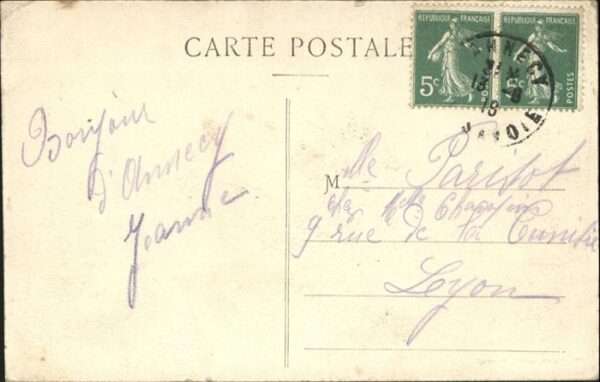 CARTE POSTALE
REPUBLIQUE FRANÇAISE
REPUBLIQUE FRANÇAISE
5c
POSTES
ANNECY
18
SAVOIE
Bonjour
d'Annecy
Jeanne
Mlle Parisot
9 rue de la
Lyon